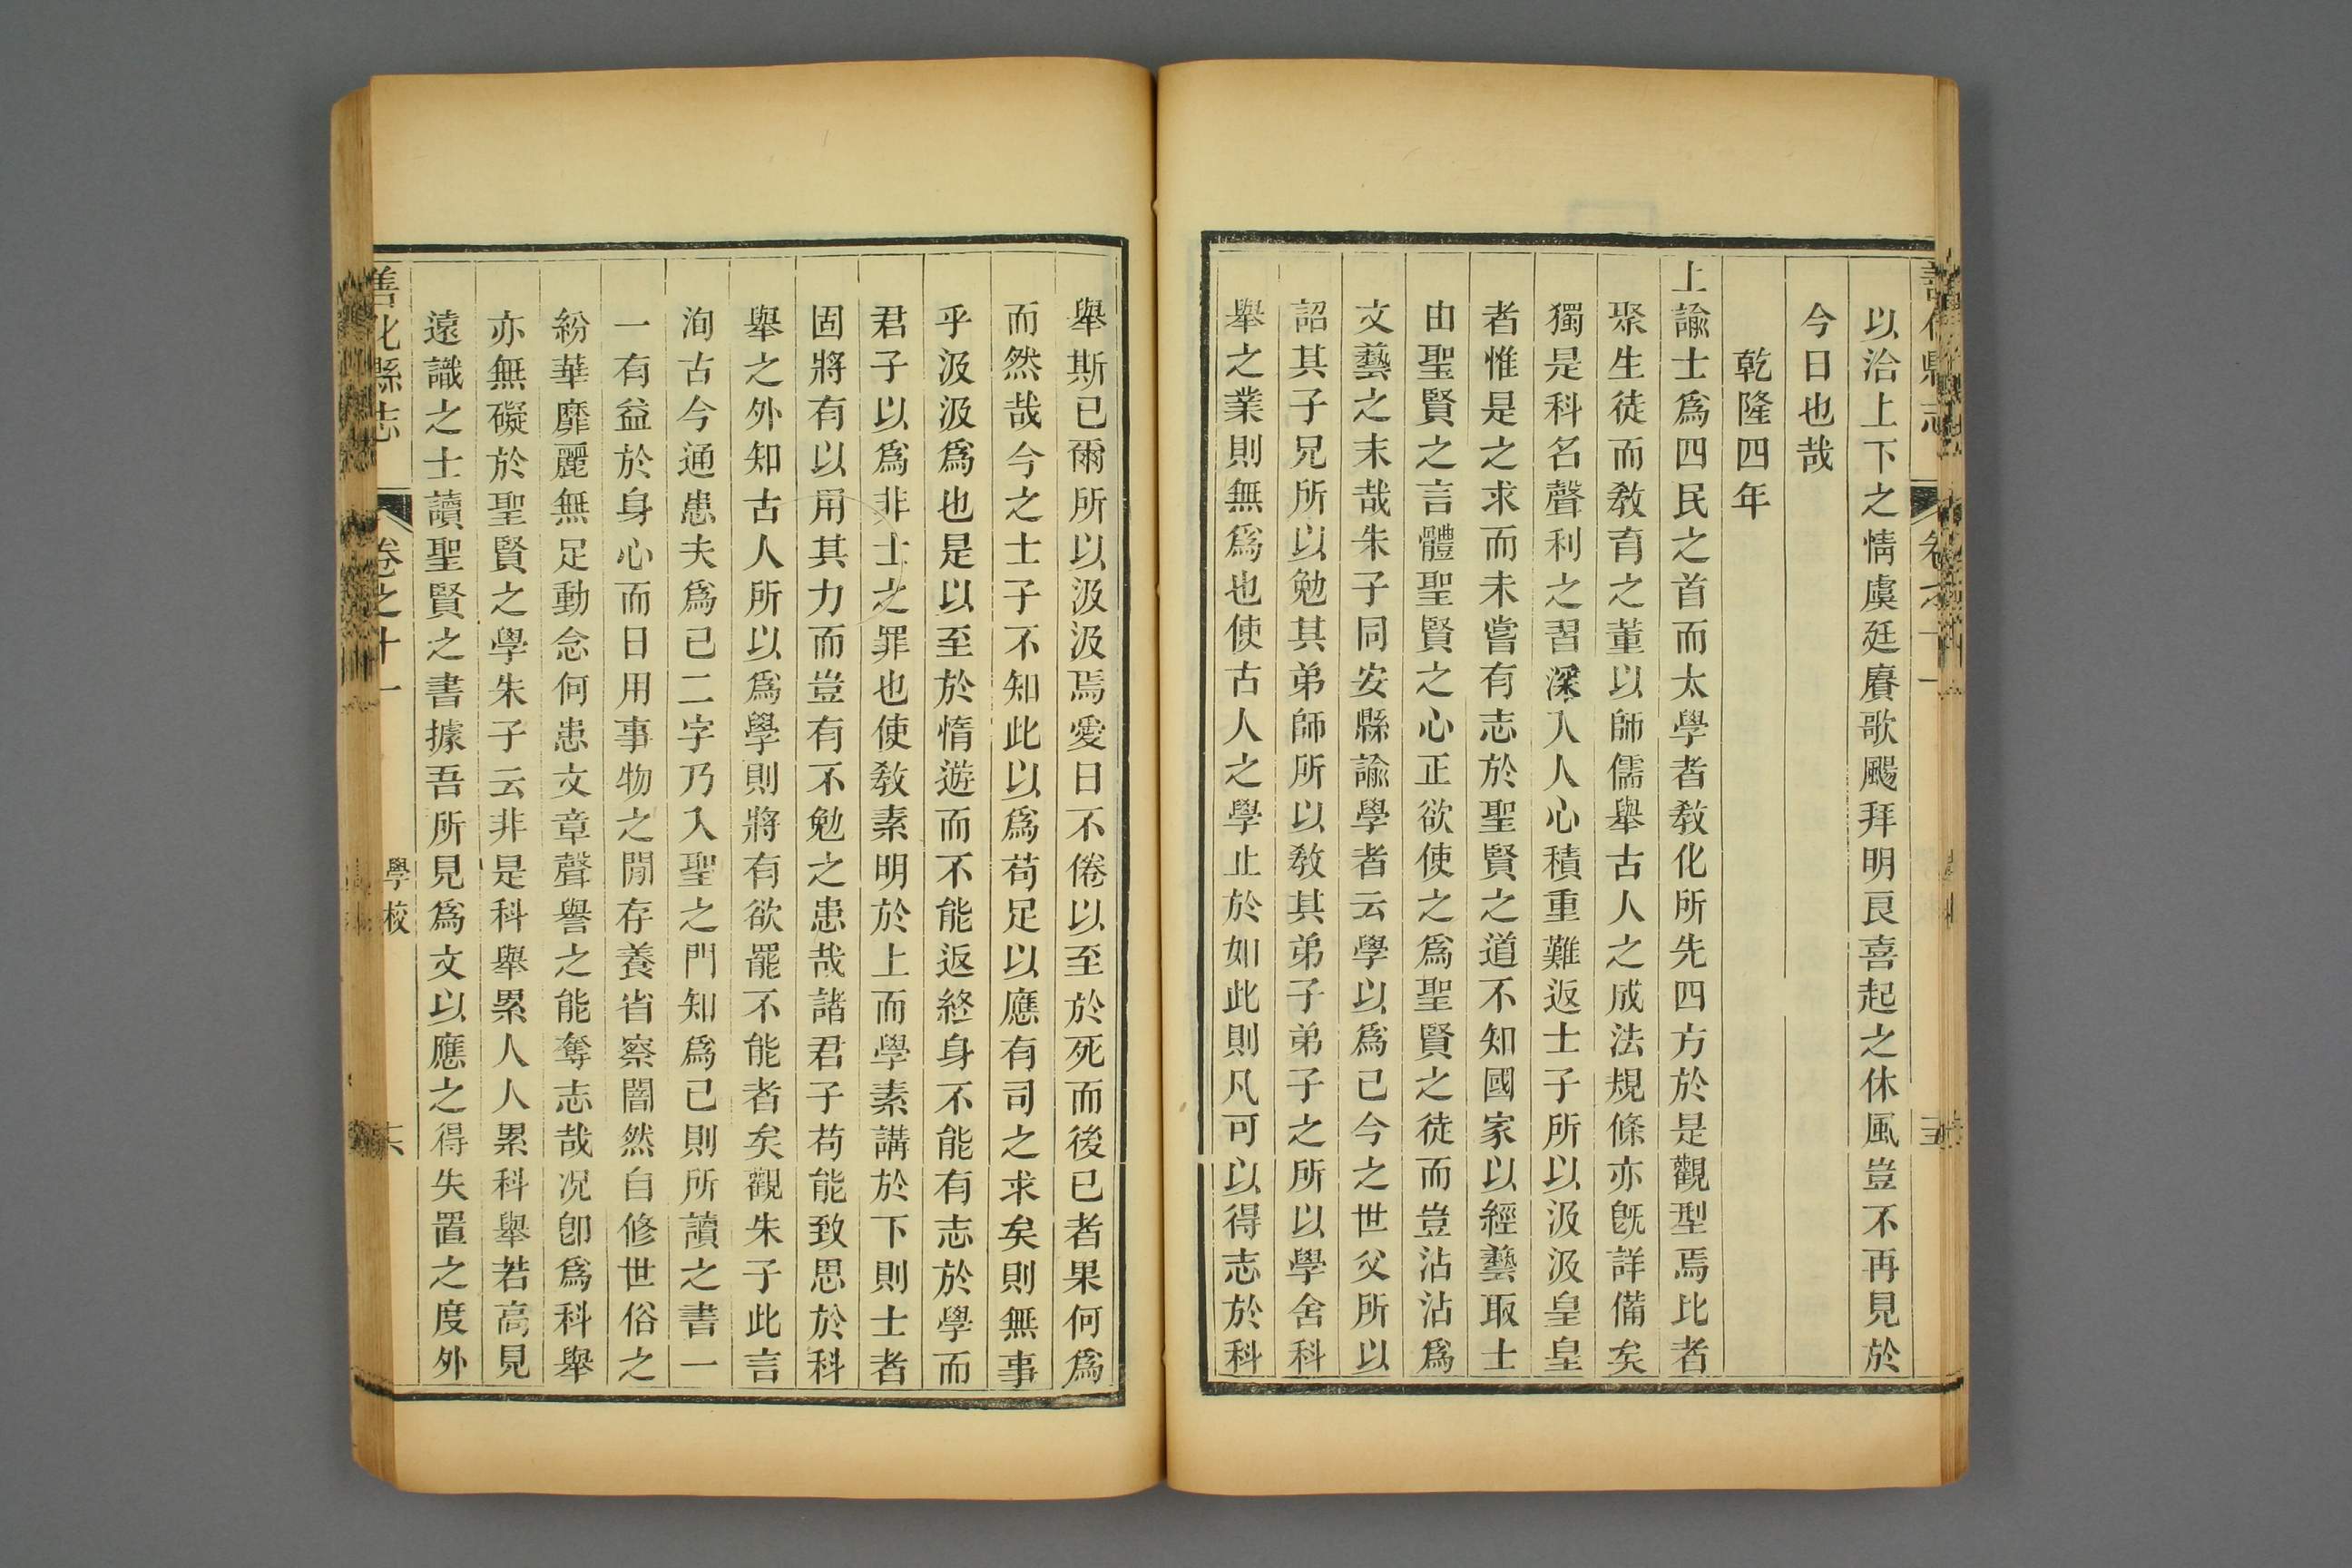 善化縣志 卷之十一
以洽上下之情虞廷賡歌颺拜明良喜起之休風豈不再見於
今日也哉
乾隆四年
上諭士爲四民之首而太學者敎化所先四方於是觀型焉比者
聚生徒而敎育之董以師儒舉古人之成法規條亦旣詳備矣
獨是科名聲利之習深入人心積重難返士子所以汲汲皇皇
者惟是之求而未嘗有志於聖賢之道不知國家以經藝取士
由聖賢之言體聖賢之心正欲使之爲聖賢之徒而豈沾沾爲
文藝之末哉朱子同安縣諭學者云學以爲己今之世父所以
詔其子兄所以勉其弟師所以敎其弟子弟子之所以學舍科
舉之業則無爲也使古人之學止於如此則凡可以得志於科
舉斯已爾所以汲汲焉愛日不倦以至於死而後已者果何爲
而然哉今之士子不知此以爲苟足以應有司之求矣則無事
乎汲汲爲也是以至於惰遊而不能返終身不能有志於學而
君子以爲非士之罪也使敎素明於上而學素講於下則士者
固將有以用其力而豈有不勉之患哉諸君子苟能致思於科
舉之外知古人所以爲學則將有欲罷不能者矣觀朱子此言
洵古今通患夫爲己二字乃入聖之門知爲己則所讀之書一
一有益於身心而日用事物之閒存養省察闇然自修世俗之
紛華靡麗無足動念何患文章聲譽之能奪志哉况卽爲科舉
亦無礙於聖賢之學朱子云非是科舉累人人累科舉若高見
遠識之士讀聖賢之書據吾所見爲文以應之得失置之度外
善化縣志 卷之十一 學校